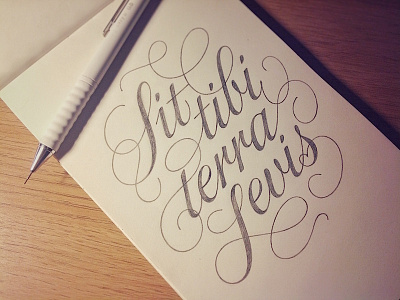 Sit
tibi
terra
Levis